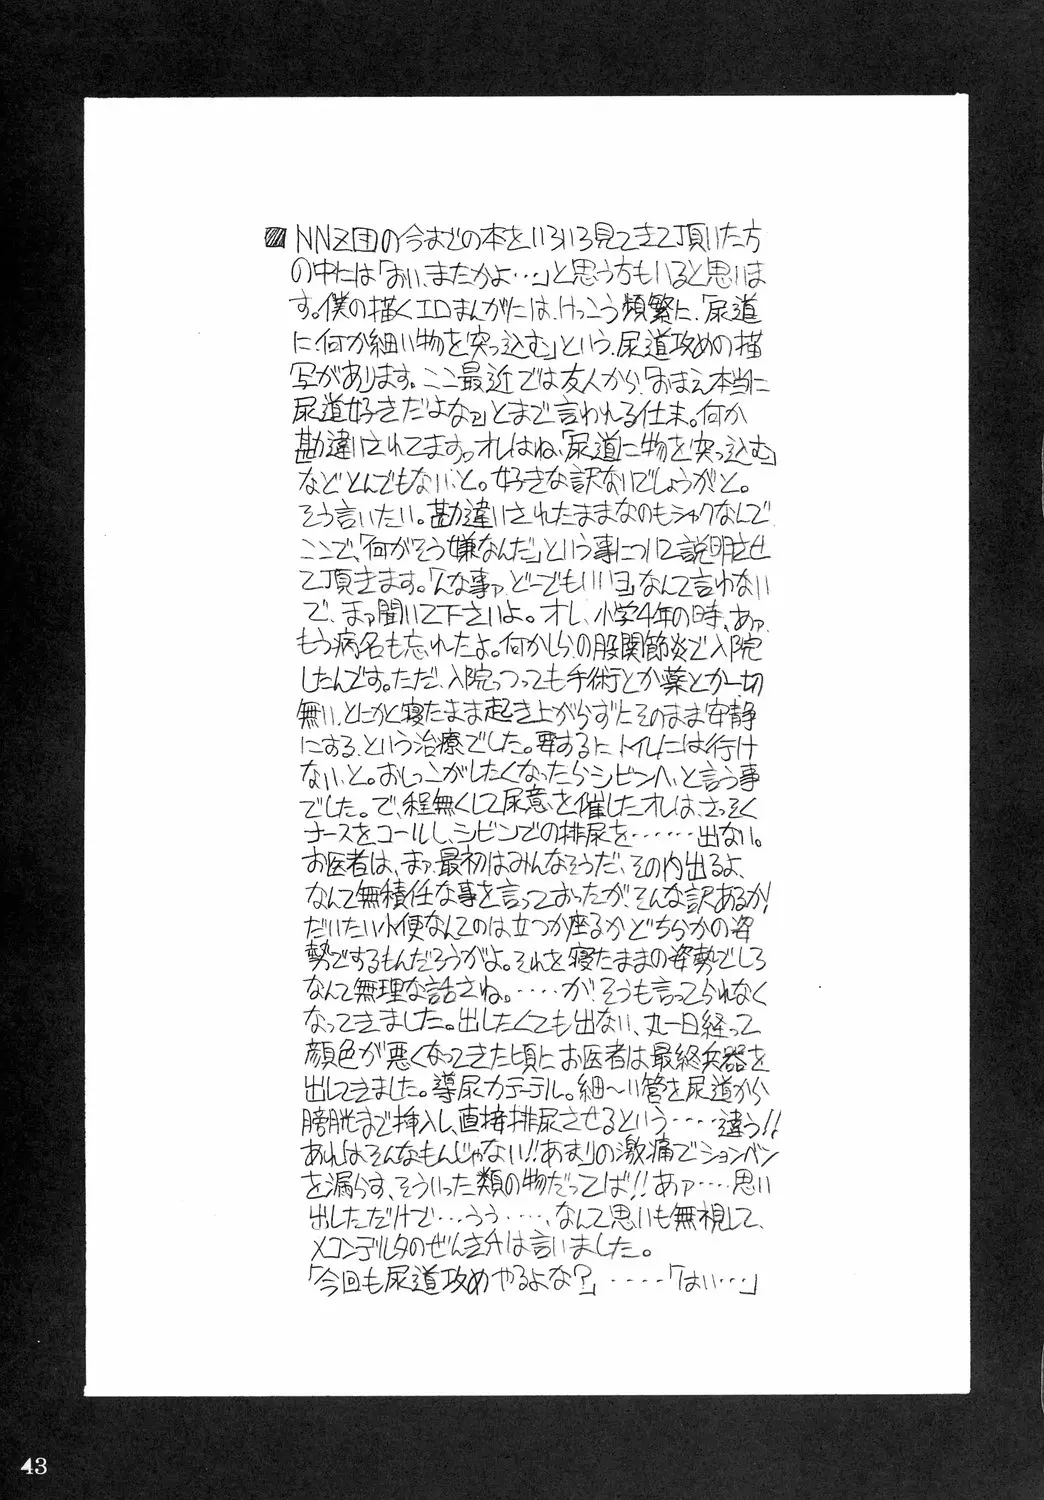 NNZ団の今までの本をいろいろ見てきて頂いた方
の中には「おい、またかよ…」と思う方もいると思いま
す。僕の描くエロまんがには、けっこう頻繁に、「尿道
に、何か細い物を突っ込む」という、尿道攻めの描
写があります。ここ最近では友人から、「おまえ本当に
尿道好きだよなァ」とまで言われる仕末。何か
勘違いされてますっ。オレはね、「尿道に物を突っ込む」
などとんでもない、と。好きな訳ないでしょうがと。
そう言いたい。勘違いされたままなのもシャクなんで
ここで、「何がそう嫌なんだ」という事について説明させ
て頂きます。「んな事ァ、どーでもいいヨ」なんて言わない
で、まァ聞いて下さいよ。オレ、小学4年の時、あァ、
もう病名も忘れたよ。何かしら、の股関節炎で入院
したんです。ただ、入院っつっても手術とか薬とか一切
無い、とにかく寝たまま起き上がらずにそのまま安静
にする、という治療でした。要するに、トイレには行け
ない、と。おしっこがしたくなったらシビンへ、と言う事
でした。で、程無くして尿意を催したオレは、さっそく
ナースをコールし、シビンでの排尿を……出ない。
お医者は、まァ、最初はみんなそうだ、その内出るよ、
なんて無積任な事を言っておったが、そんな訳あるか!
だいたい小便なんてのは立つか座るかどちらかの姿
勢でするもんだろうがよ。それを寝たままの姿勢でしろ
なんて無理な話さね。‥‥が、そうも言ってられなく
なってきました。出したくても出ない、丸一日経って
顔色が悪くなってきた頃に、お医者は最終兵器を
出してきました。導尿カテーテル。細〜い管を尿道から
膀胱まで挿入し、直接排尿させるという‥‥違う!!
あれはそんなもんじゃない!!あまりの激痛でションベン
を漏らす、そういった類の物だってば!!あァ‥‥思い
出しただけで…うぅ‥‥、なんて思いも無視して、
メコンデルタのぜんきチは言いました。
「今回も尿道攻めやるよな?」‥‥「はい…」
43